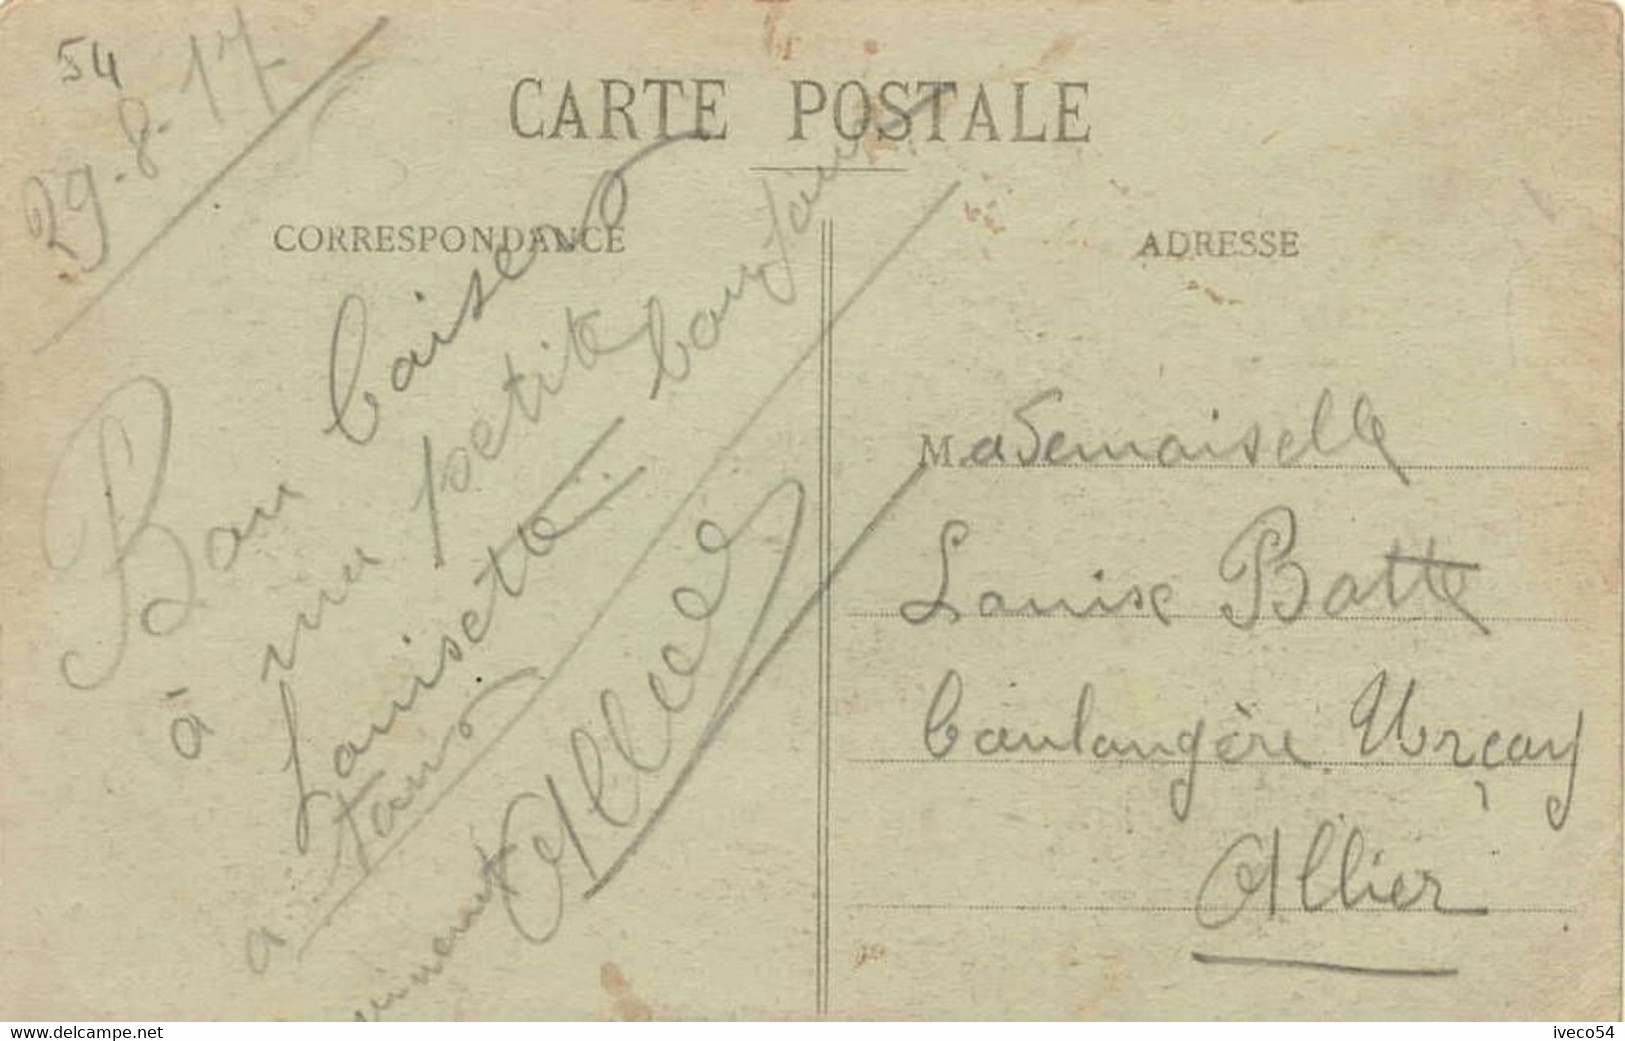 54
29-8-17
CARTE POSTALE
CORRESPONDANCE
ADRESSE
Bon baiser
à ma petite
Louisette bonjour
a tous
Mademoiselle
Louise Batte
boulangère Urçay
Allier
www.delcampe.net
iveco54